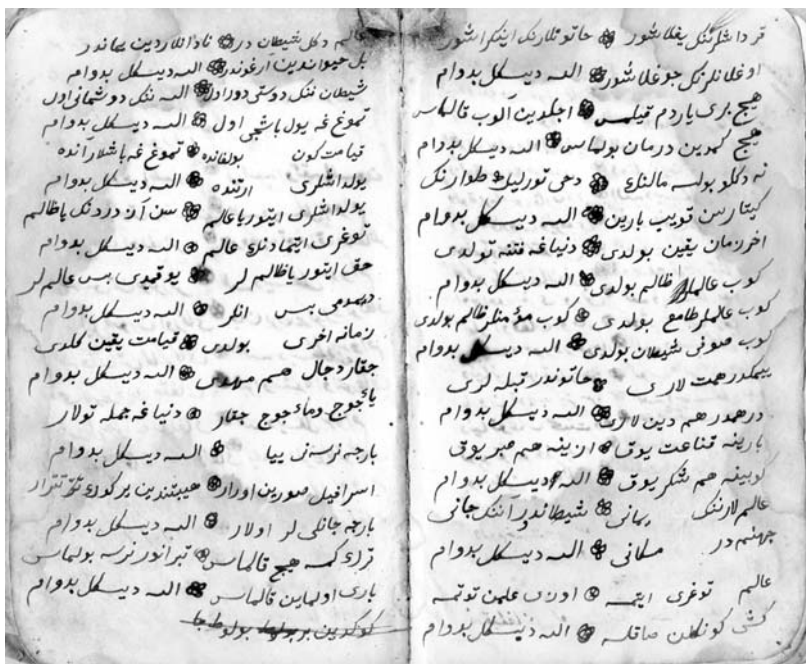 قرداشلرنكل يغلاشور ❁ خاتونلارنك اينكراشور
اوغلانلرنك جوغلاشور ❁ الله ديسكل بدوام
هيچ برى ياردم قيلمس ❁ اجلدين آلوب قالماس
هيچ كمدين درمان بولماس ❁ الله ديسكل بدوام
نه دكلو بولسه مالنك ❁ دخى تورليك طوارنك
كيتارسن قويب بارين ❁ الله ديسكل بدوام
اخر زمان يقين بولدى ❁ دنياغه فتنه تولدى
كوب عالملر ظالم بولدى ❁ الله ديسكل بدوام
كوب عالملر طامع بولدى ❁ كوب مؤمنلر ظالم بولدى
كوب صوفى شيطان بولدى ❁ الله ديسكل بدوام
ييمكدر همت لارى ❁ خاتوندر قبله لرى
درهمدر هم دين لارى ❁ الله ديسكل بدوام
بارينه قناعت يوق ❁ ازينه هم صبر يوق
كوبينه هم شكر يوق ❁ الله ديسكل بدوام
عالم لارننك يمانى ❁ شيطاندور آننك جانى
جهنم در مكانى ❁ الله ديسكل بدوام
عالم توغرى ايتسه ❁ اوزى علمن توتسه
كشى كونكلن صاقلسه ❁ الله ديسكل بدوام
عالم دكل شيطان در ❁ نادانلاردين يماندر
بل حيواندين آرغوندر ❁ الله ديسكل بدوام
شيطان ننك دوستى دور اول ❁ الله ننك دوشمانى اول
تموغ غه يول باشچى اول ❁ الله ديسكل بدوام
قيامت كون بولغانده ❁ تموغ غه باشلارآنده
يولداشلرى ارتنده ❁ الله ديسكل بدوام
يولداشلرى ايتور يا عالم ❁ سن آزدردنك يا ظالم
توغرى ايتمادنك عالم ❁ الله ديسكل بدوام
حق ايتور يا ظالم لر ❁ يوقميدى بس عالم لر
ديمدومى بس انلر ❁ الله ديسكل بدوام
زمانه اخرى بولدى ❁ قيامت يقين كلدى
جقار دجال هم مهدى ❁ الله ديسكل بدوام
يأجوج ومأجوج جقار ❁ دنياغه جمله تولار
بارجه نرسه نى ييا ❁ الله ديسكل بدوام
اسرافيل صورين اورار ❁ هيبتندين ير كوك تترار
بارجه جانلى لر اولار ❁ الله ديسكل بدوام
ترك كمسه هيچ قالماس ❁ تبرانور نرسه بولماس
بارى اولماين قالماس ❁ الله ديسكل بدوام
كوكدين بر بولوط